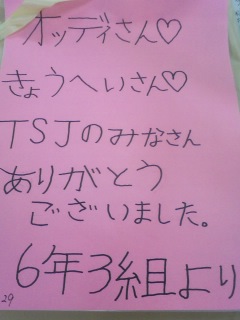 オッディさん♡
きょうへいさん♡
TSJのみなさん
ありがとう
ございました。
6年3組より
29